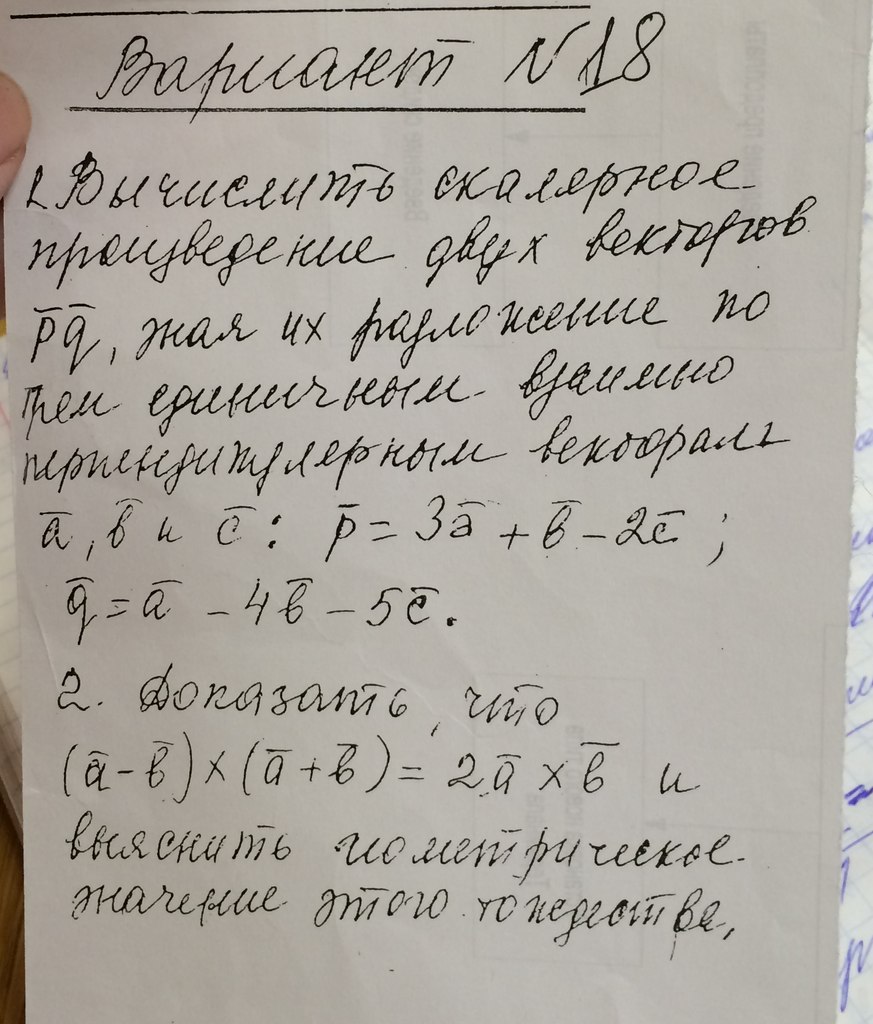 Вариант N 18
1. Вычислить скалярное
произведение двух векторов
p̄ q̄, зная их разложение по
трем единичным взаимно
перпендикулярным векторам
ā, b̄ и c̄: p̄ = 3ā + b̄ - 2c̄;
q̄ = ā - 4b̄ - 5c̄.
2. Доказать, что
(ā - b̄) × (ā + b̄) = 2ā × b̄ и
выяснить геометрическое
значение этого тождества.